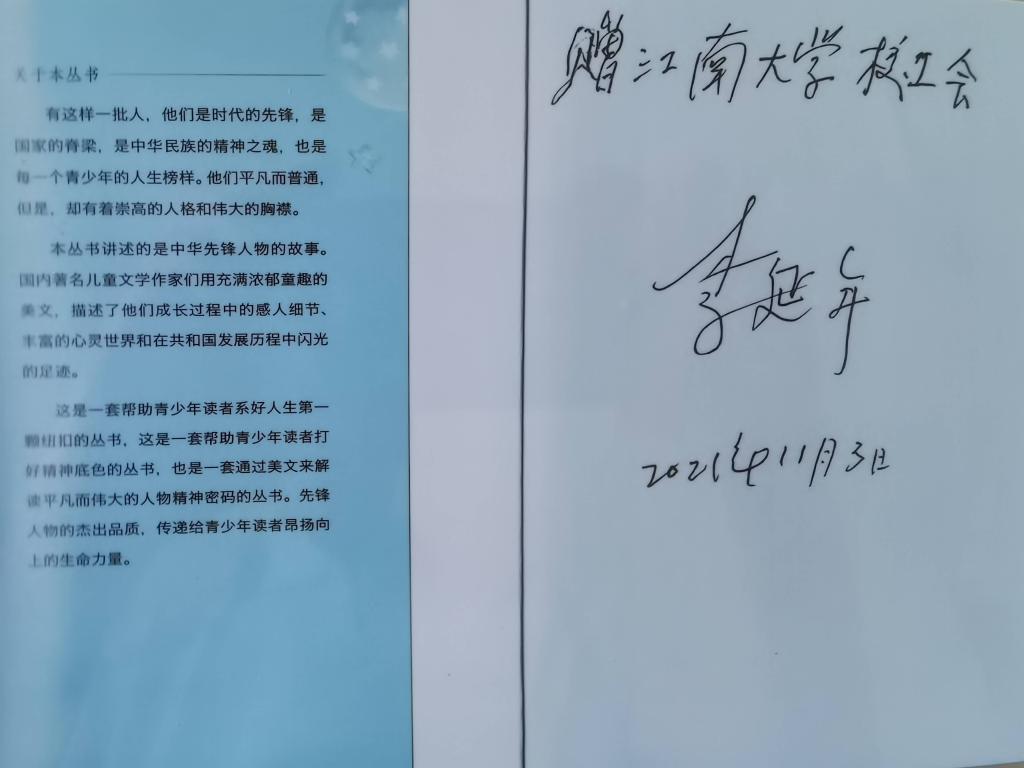 关于本丛书
有这样一批人，他们是时代的先锋，是
国家的脊梁，是中华民族的精神之魂，也是
每一个青少年的人生榜样。他们平凡而普通，
但是，却有着崇高的人格和伟大的胸襟。
本丛书讲述的是中华先锋人物的故事。
国内著名儿童文学作家们用充满浓郁童趣的
美文，描述了他们成长过程中的感人细节、
丰富的心灵世界和在共和国发展历程中闪光
的足迹。
这是一套帮助青少年读者系好人生第一
颗纽扣的丛书，这是一套帮助青少年读者打
好精神底色的丛书，也是一套通过美文来解
读平凡而伟大的人物精神密码的丛书。先锋
人物的杰出品质，传递给青少年读者昂扬向
上的生命力量。
赠江南大学校工会
李延年
2021年11月3日